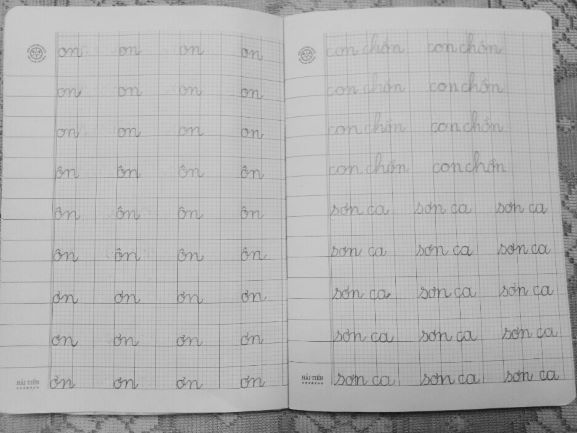 on on on on
on on on on
on on on on
ôn ôn ôn ôn
ôn ôn ôn ôn
ôn ôn ôn ôn
ơn ơn ơn ơn
ơn ơn ơn ơn
HẢI TIẾN
ơn ơn ơn ơn
con chồn con chồn
con chồn con chồn
con chồn con chồn
con chồn con chồn
sơn ca sơn ca sơn ca
sơn ca sơn ca sơn ca
sơn ca sơn ca sơn ca
sơn ca sơn ca sơn ca
HẢI TIẾN
sơn ca sơn ca sơn ca